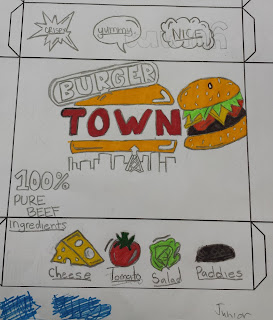 CRISPY
yummy
NICE
BURGER
TOWN
100%
PURE
BEEF
Ingredients
Cheese Tomato Salad Paddies
Junior